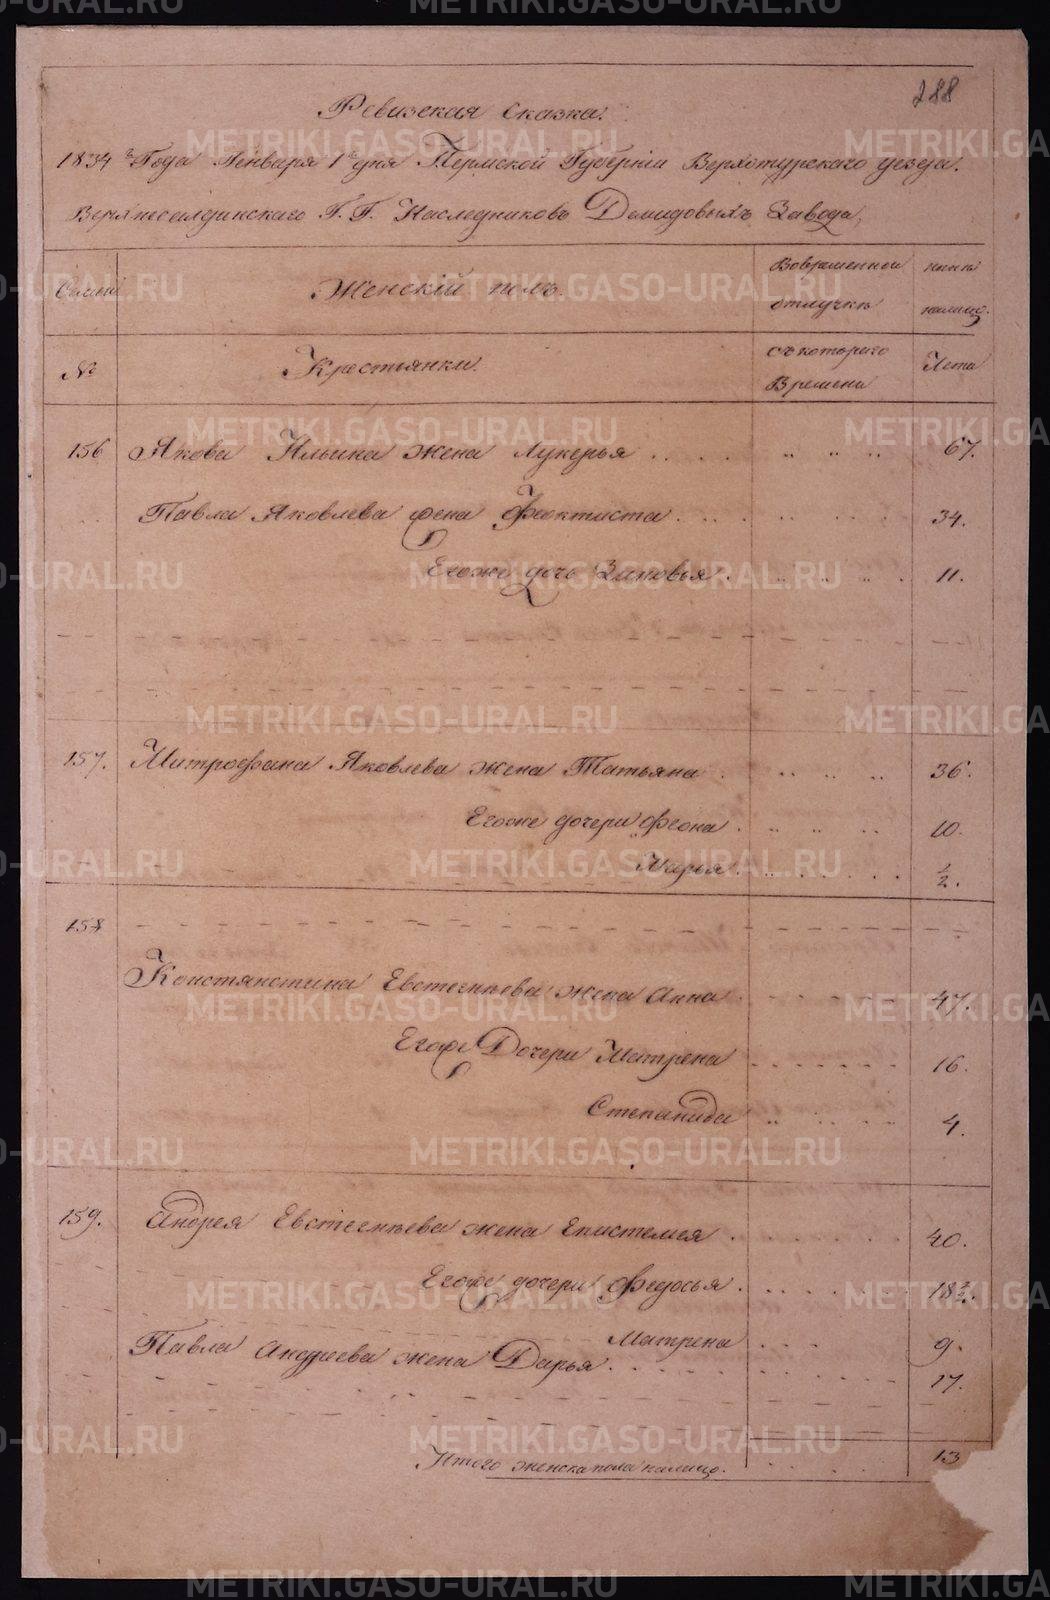 288
Ревизская Сказка.
1834 года Генваря 1 дня Пермской Губернiи Верхотурского уезда.
Верхнесалдинскаго Г. Г. Наследниковъ Демидовыхъ Завода,
Семьи Женскiй полъ. Вовременной отлучкѣ нынѣ налицо.
№ Крестьянки. съ которого Времени Лета
156 Якова Ильина жена Лукерья 67.
Павла Яковлева жена Феоктиста 34.
Егоже дочь Зиновья 11.
157. Митрофана Яковлева жена Татьяна 36.
Егоже дочери Феона 10.
Марья 1/2.
158
Констянстина Евстегнѣева жена Анна 47.
Егоже Дочери Матрена 16.
Степанида 4.
159. Андрея Евстегнѣева жена Епистемея 40.
Егоже дочери Федосья 18
Матрена 9.
Павла Андреева жена Дарья 17.
Итого женска пола налицо. 13
METRIKI.GASO-URAL.RU